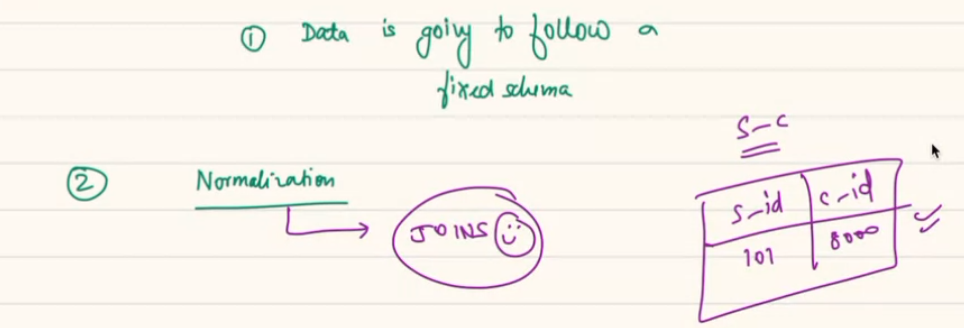 ① Data is going to follow a
fixed schema
S-C
② Normalization
JOINS
s-id c-id
101 8000